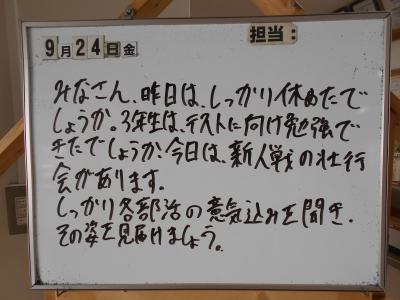 9月24日金
担当：
みなさん、昨日は、しっかり休めたで
しょうか。3年生は、テストに向け勉強で
きたでしょうか。今日は、新人戦の壮行
会があります。
しっかり各部活の意気込みを聞き、
その姿を見届けましょう。